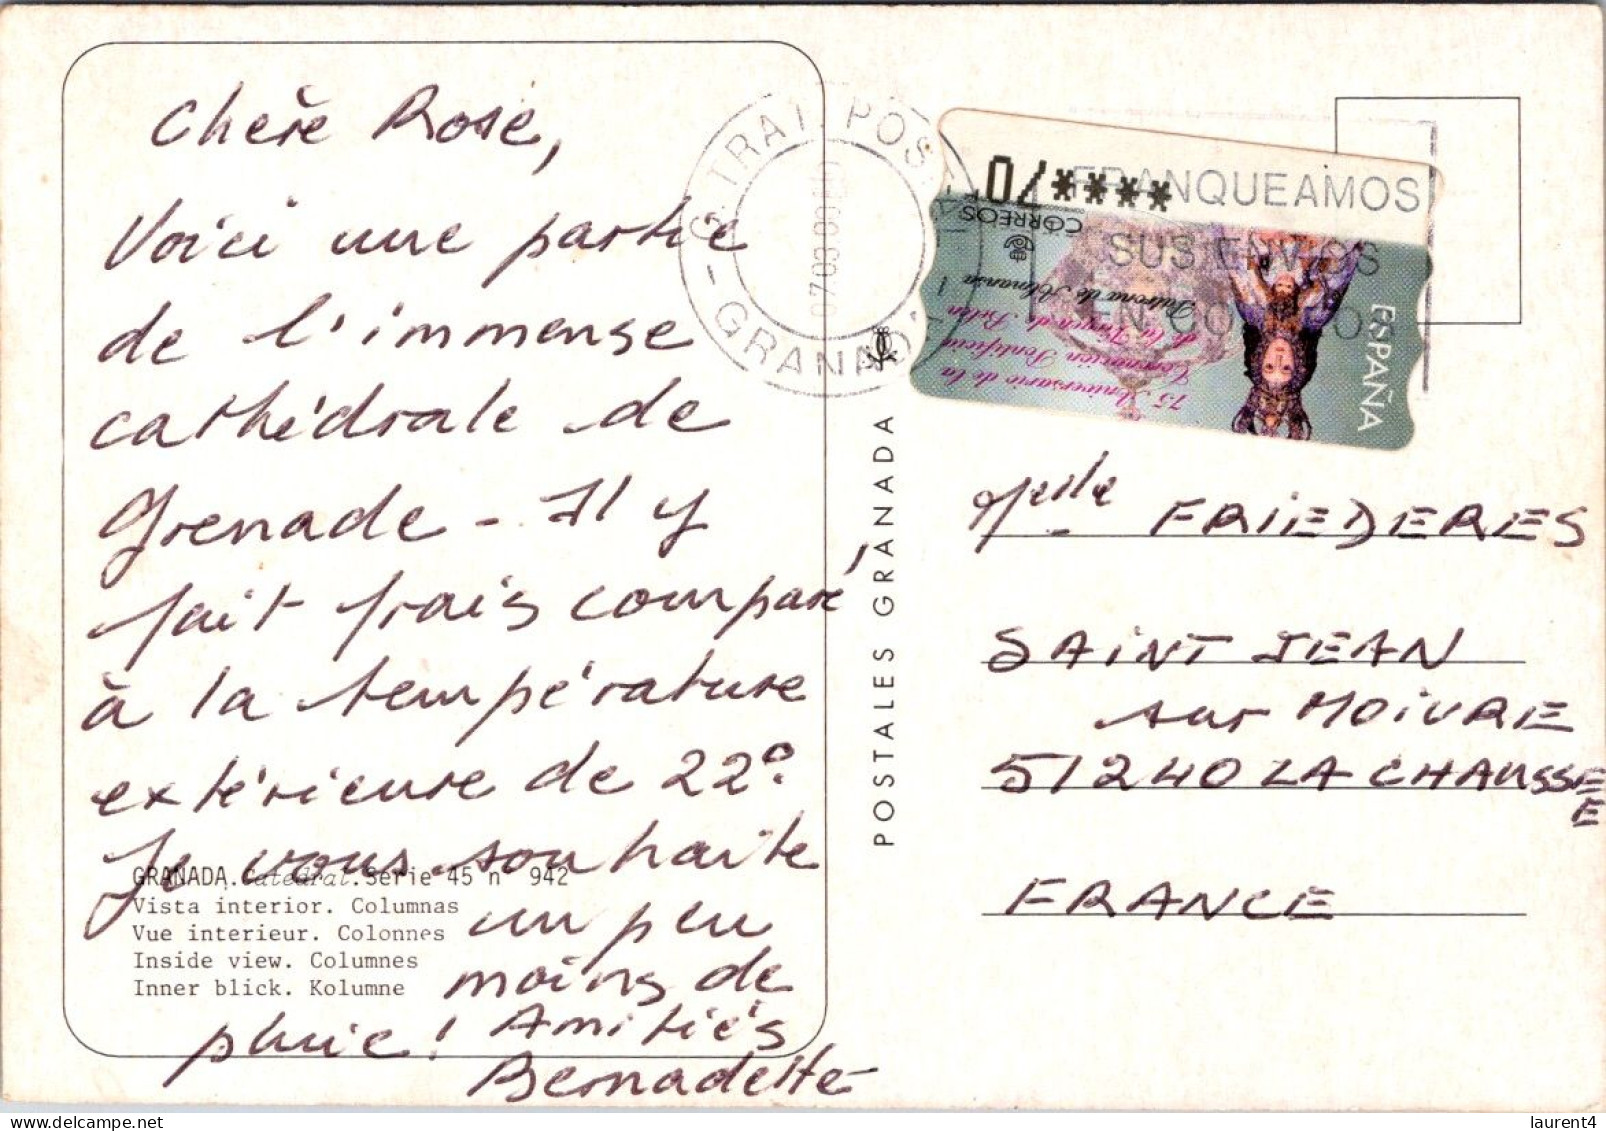 Chère Rose,
Voici une partie
de l'immense
cathédrale de
Grenade - Il y
fait frais comparé
à la température
extérieure de 22°.
Je vous souhaite
un peu
moins de
pluie ! Amitiés
Bernadette
GRANADA.Catedral.Serie 45 n° 942
Vista interior. Columnas
Vue interieur. Colonnes
Inside view. Columnes
Inner blick. Kolumne
POSTALES GRANADA
GRANADA
FRANQUEAMOS
SUS ENVIOS
EN
****
CORREOS
ESPAÑA
75 Aniversario de la
Coronación Pontificia
de la Virgen de Belén
Patrona de Almansa
Melle FRIEDERES
SAINT JEAN
sur MOIVRE
51240 LA CHAUSSEE
FRANCE
laurent4